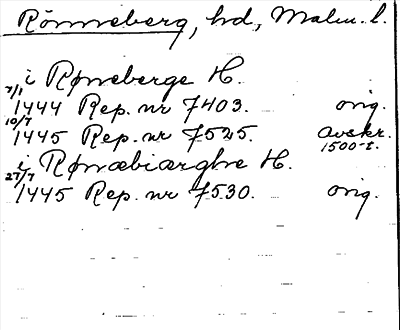 Rönneberg, hd, Malm. l.
i Røneberge H.
7/1
1444 Rep. nr 7403. orig.
10/7
1445 Rep. nr 7525. Avskr.
1500-t.
i Rønæbiærghre H.
27/7
1445 Rep. nr 7530. orig.